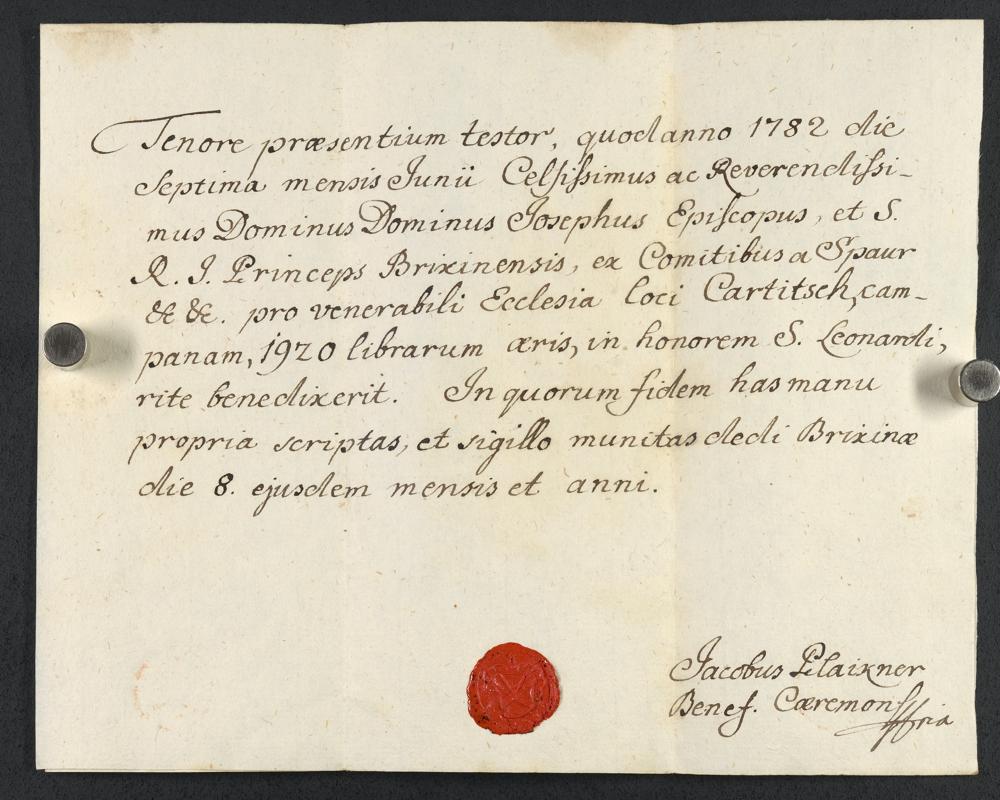 Tenore præsentium testor, quod anno 1782 die
Septima mensis Junii Celsissimus ac Reverendissi-
mus Dominus Dominus Josephus Episcopus, et S.
R. I. Princeps Brixinensis, ex Comitibus a Spaur
&c &c. pro venerabili Ecclesia loci Cartitsch, cam-
panam, 1920 librarum æris, in honorem S. Leonardi,
rite benedixerit. In quorum fidem has manu
propria scriptas, et sigillo munitas dedi Brixinæ
die 8. ejusdem mensis et anni.
Jacobus Plaixner
Benef. Cæremon